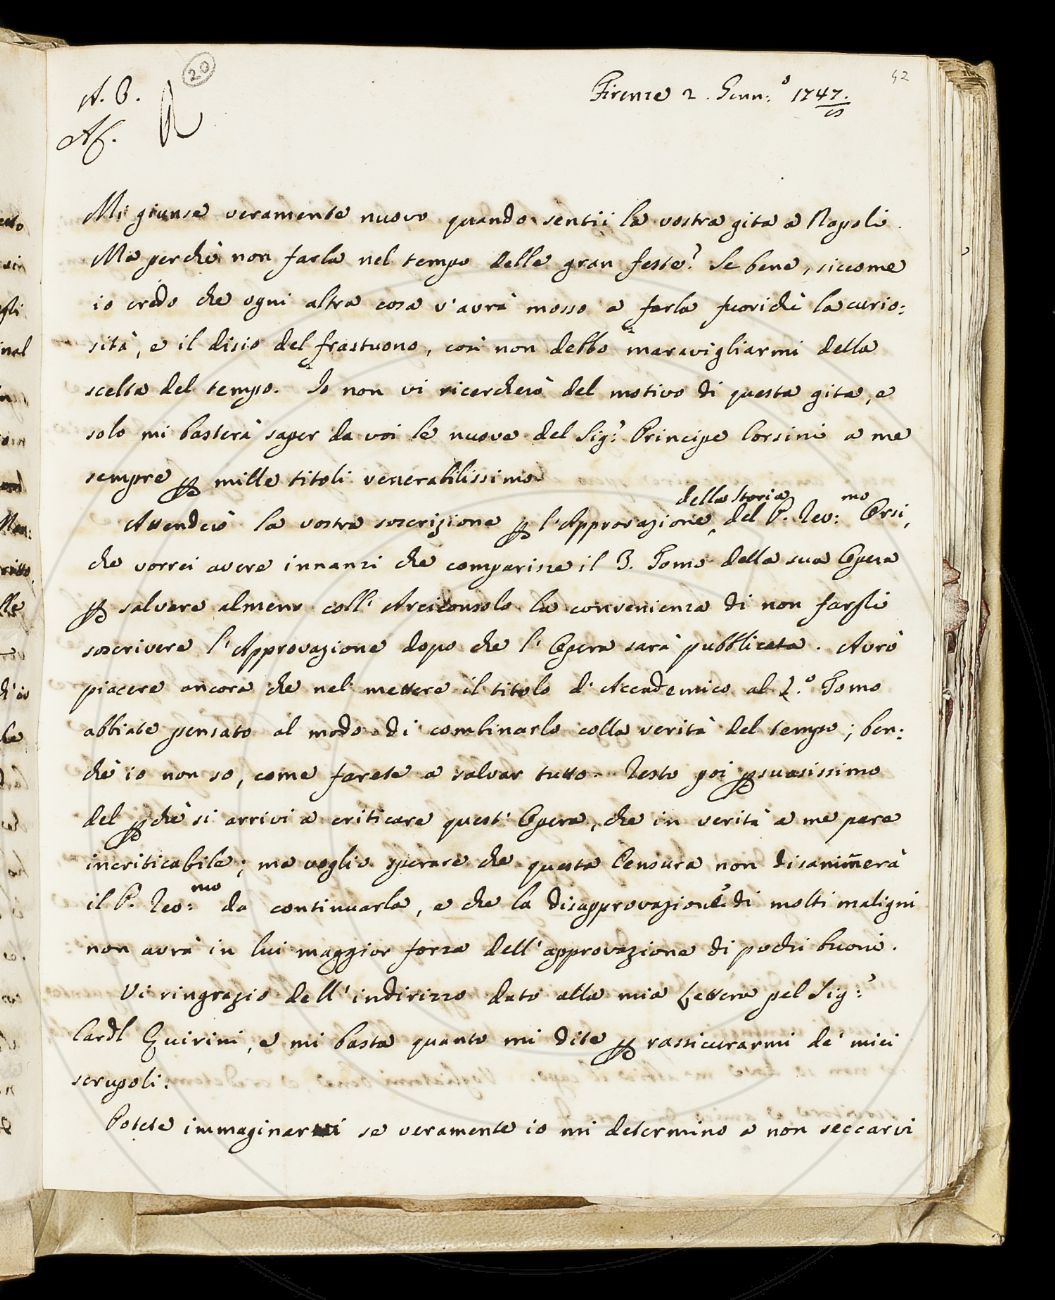 20
42
A. C.
Af.
Firenze 2. Genn:º 1747.
Mi giunse veramente nuovo quando sentii la vostra gita a Napoli.
Ma perchè non farla nel tempo delle gran feste? Se bene, siccome
io credo che ogni altra cosa v'avrà mosso a farla fuorichè la curio:
sità, e il disio del frastuono, così non debbo maravigliarmi della
scelta del tempo. Io non vi ricercherò del motivo di questa gita, e
solo mi basterà saper da voi le nuove del Sig: Principe Corsini a me
sempre ꝑ mille titoli venerabilissimo
della Storia
Attenderò la vostra soscrizione ꝑ l'Approvazione, del P. Rev:mo Orsi,
che vorrei avere innanzi che comparisse il 3. Tomo della sua Opera
ꝑ salvare almeno coll' Arciconsolo la convenienza di non fargli
soscrivere l'Approvazione dopo che l'Opera sarà pubblicata. Avrò
piacere ancora che nel mettere il titolo d'Accademico al 2.º Tomo
abbiate pensato al modo di combinarlo colla verità del tempo; ben:
chè io non so, come farete a salvar tutto. Resto poi ꝑsuasissimo
del ꝑchè si arrivi a criticare quest' Opera, che in verità a me pare
incriticabile; ma voglio sperare che questa Censura non disanimerà
il P. Rev:mo da continuarla, e che la disapprovazione di molti maligni
non avrà in lui maggior forza dell'approvazione di pochi buoni.
Vi ringrazio dell'indirizzo dato alla mia Lettera pel Sig:
Cardl Quirini, e mi basta quanto mi dite ꝑ rassicurarmi de' miei
scrupoli.
Potete immaginarvi se veramente io mi determino a non seccarvi